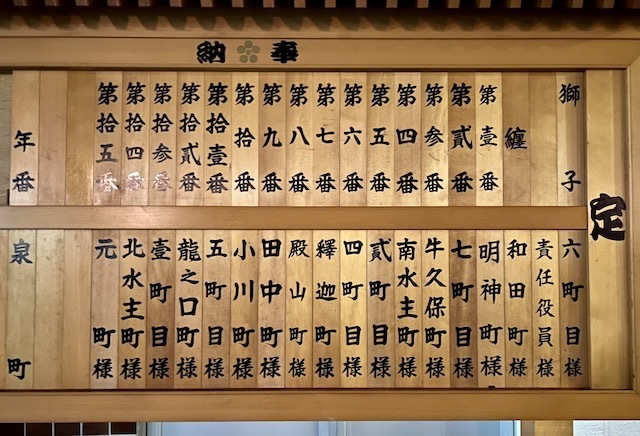 奉納
定
獅子
六町目様
責任役員様
纏
和田町様
第壹番
明神町様
第貳番
七町目様
第参番
牛久保町様
第四番
南水主町様
第五番
貳町目様
第六番
四町目様
第七番
釋迦町様
第八番
殿山町様
第九番
田中町様
第拾番
小川町様
第拾壹番
五町目様
第拾貳番
龍之口町様
第拾参番
壹町目様
第拾四番
北水主町様
第拾五番
元町様
年番
泉町